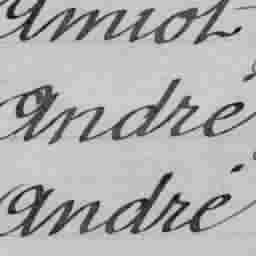 Amiot
André
André